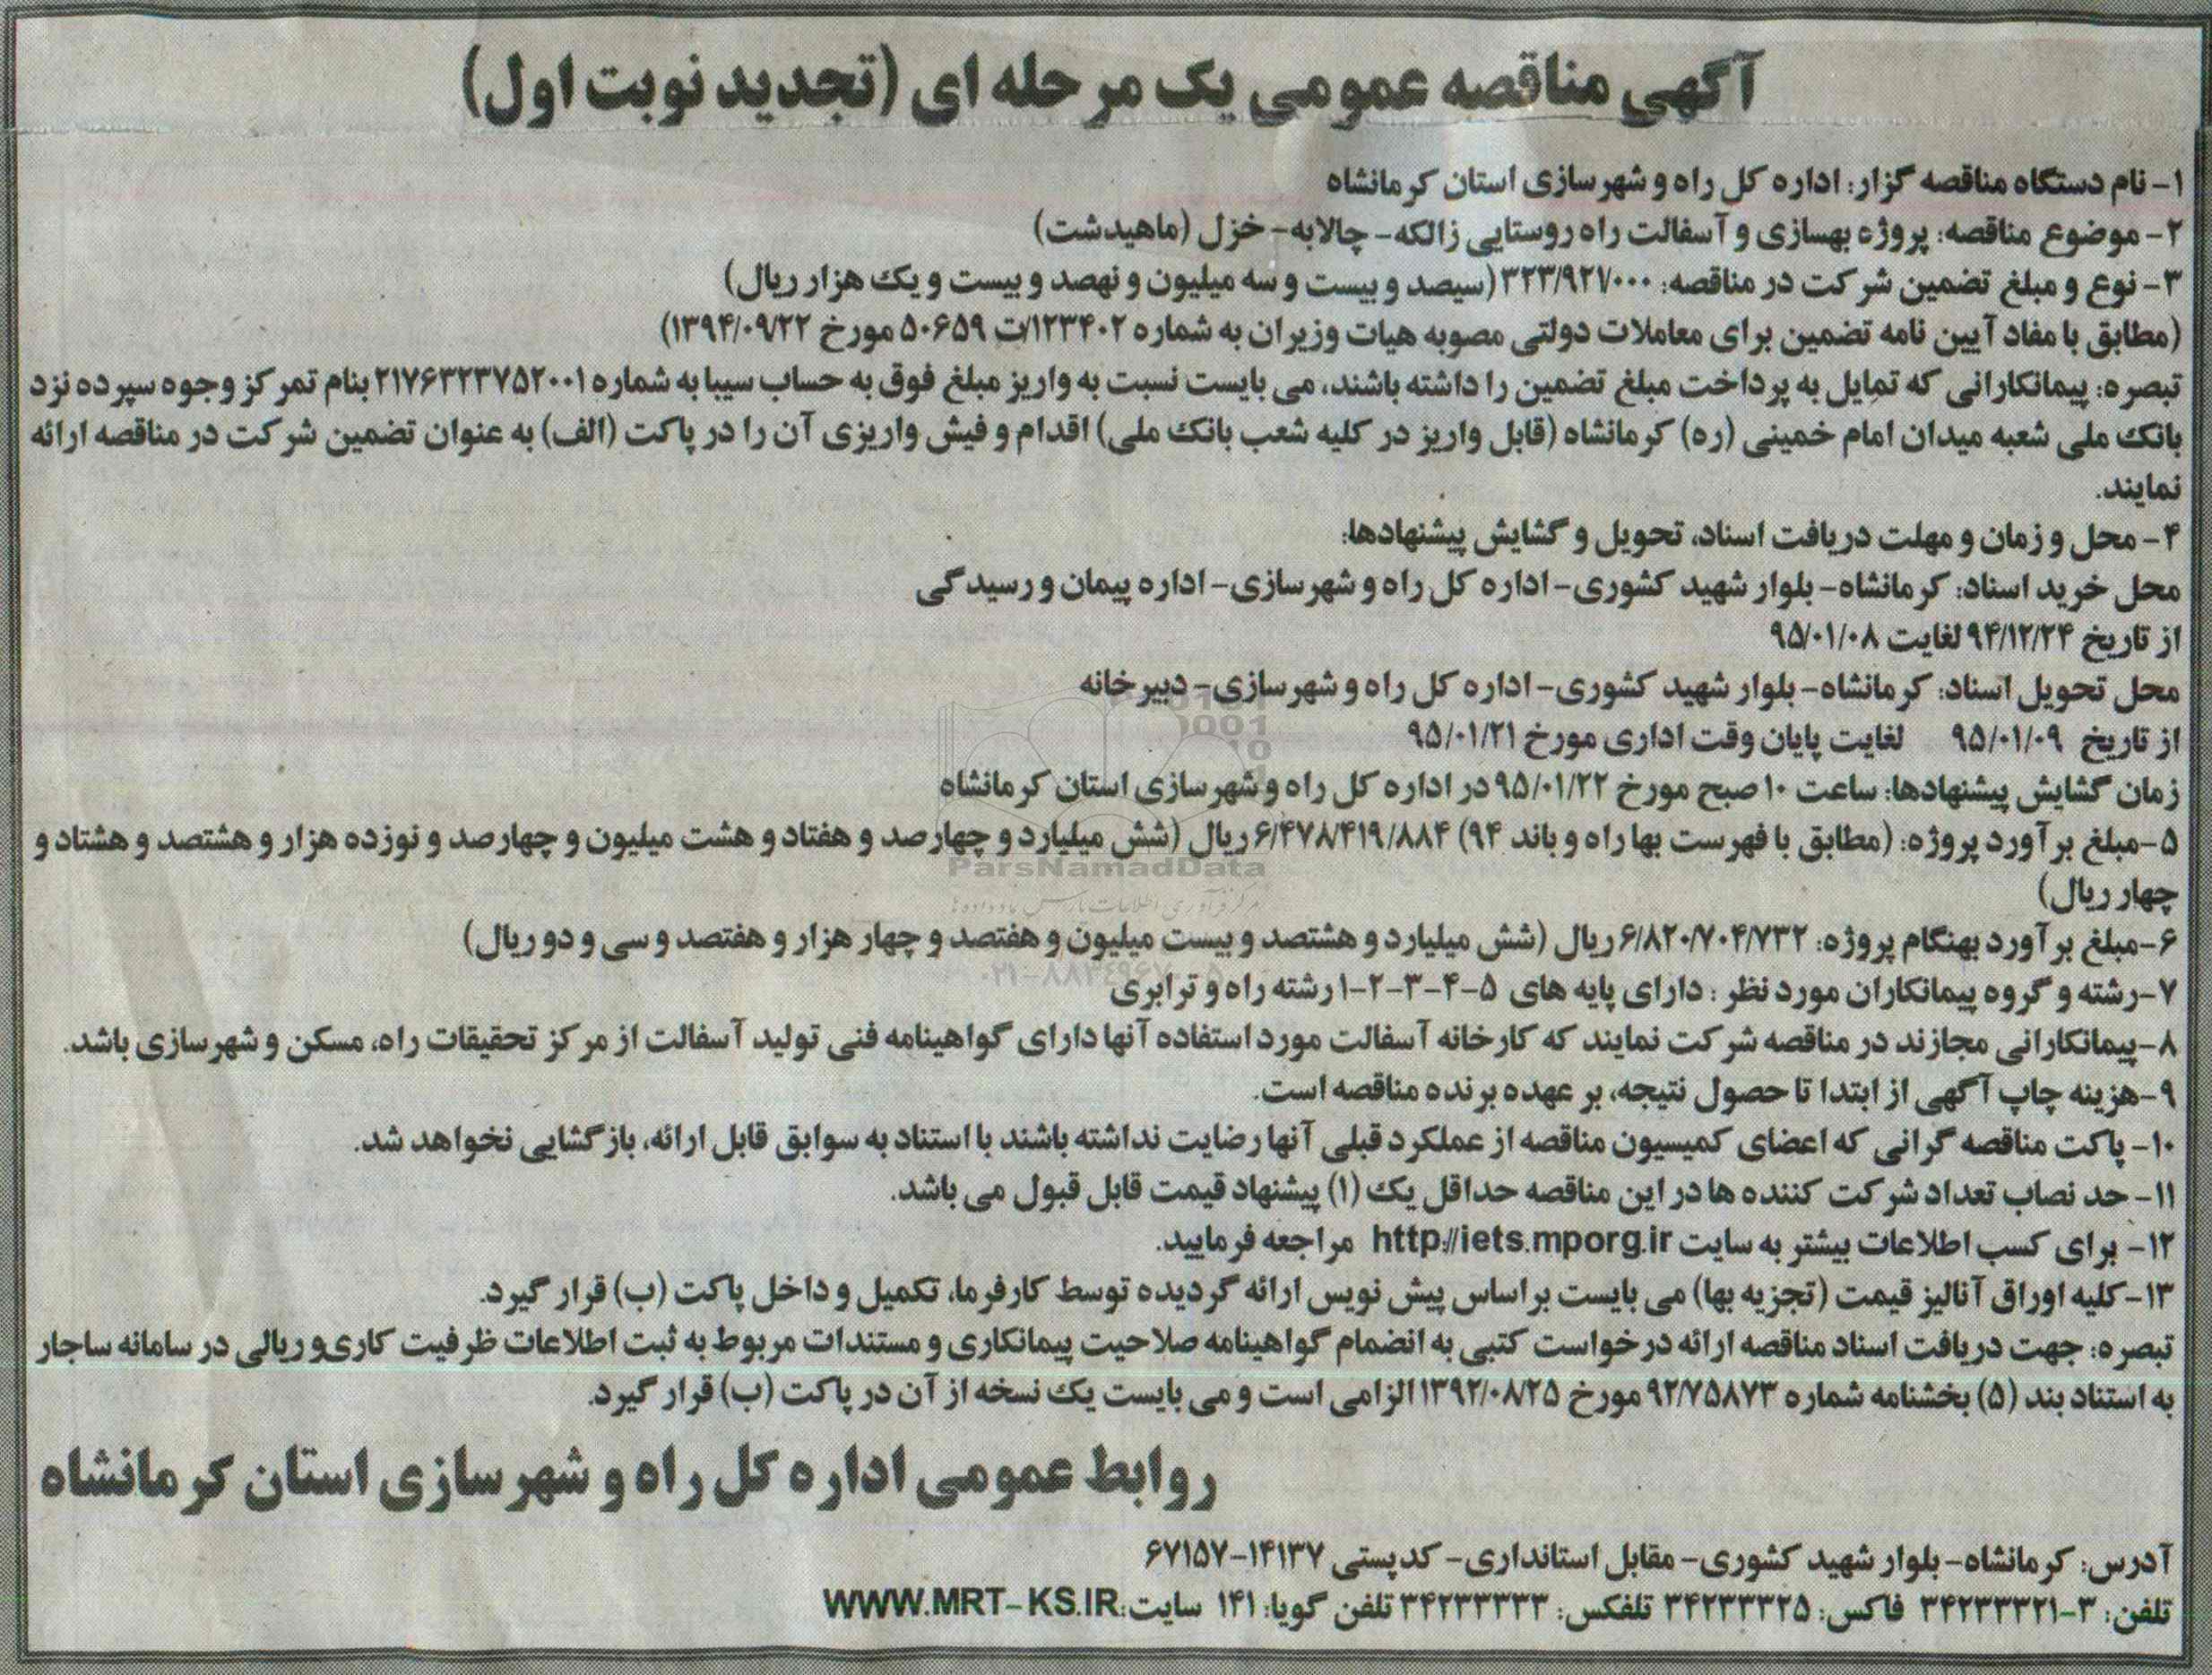 آگهی مناقصه عمومی یک مرحله ای (تجدید نوبت اول)
۱- نام دستگاه مناقصه گزار: اداره کل راه و شهرسازی استان کرمانشاه
۲- موضوع مناقصه: پروژه بهسازی و آسفالت راه روستایی زالکه- چالابه- خزل (ماهیدشت)
۳- نوع و مبلغ تضمین شرکت در مناقصه: ۳۲۳/۹۲۱/۰۰۰ (سیصد و بیست و سه میلیون و نهصد و بیست و یک هزار ریال)
(مطابق با مفاد آیین نامه تضمین برای معاملات دولتی مصوبه هیات وزیران به شماره ۱۲۳۴۰۲/ت ۵۰۶۵۹ مورخ ۱۳۹۴/۰۹/۲۲)
تبصره: پیمانکارانی که تمایل به پرداخت مبلغ تضمین را داشته باشند، می بایست نسبت به واریز مبلغ فوق به حساب سیبا به شماره ۲۱۷۶۳۲۳۷۵۲۰۰۱ بنام تمرکز وجوه سپرده نزد
بانک ملی شعبه میدان امام خمینی (ره) کرمانشاه (قابل واریز در کلیه شعب بانک ملی) اقدام و فیش واریزی آن را در پاکت (الف) به عنوان تضمین شرکت در مناقصه ارائه
نمایند.
۴- محل و زمان و مهلت دریافت اسناد، تحویل و گشایش پیشنهادها:
محل خرید اسناد: کرمانشاه- بلوار شهید کشوری- اداره کل راه و شهرسازی- اداره پیمان و رسیدگی
از تاریخ ۹۴/۱۲/۲۴ لغایت ۹۵/۰۱/۰۸
محل تحویل اسناد: کرمانشاه- بلوار شهید کشوری- اداره کل راه و شهرسازی- دبیرخانه
از تاریخ ۹۵/۰۱/۰۹ لغایت پایان وقت اداری مورخ ۹۵/۰۱/۲۱
زمان گشایش پیشنهادها: ساعت ۱۰ صبح مورخ ۹۵/۰۱/۲۲ در اداره کل راه و شهرسازی استان کرمانشاه
۵-مبلغ برآورد پروژه: (مطابق با فهرست بها راه و باند ۹۴) ۶/۴۷۸/۴۱۹/۸۸۴ ریال (شش میلیارد و چهارصد و هفتاد و هشت میلیون و چهارصد و نوزده هزار و هشتصد و هشتاد و
ParsNamadData
چهار ریال)
۶-مبلغ برآورد بهنگام پروژه: ۶/۸۲۰/۷۰۴/۷۳۲ ریال (شش میلیارد و هشتصد و بیست میلیون و هفتصد و چهار هزار و هفتصد و سی و دو ریال)
۷-رشته و گروه پیمانکاران مورد نظر : دارای پایه های ۵-۴-۳-۲-۱ رشته راه و ترابری
۸-پیمانکارانی مجازند در مناقصه شرکت نمایند که کارخانه آسفالت مورد استفاده آنها دارای گواهینامه فنی تولید آسفالت از مرکز تحقیقات راه، مسکن و شهرسازی باشد.
۹-هزینه چاپ آگهی از ابتدا تا حصول نتیجه، بر عهده برنده مناقصه است.
۱۰- پاکت مناقصه گرانی که اعضای کمیسیون مناقصه از عملکرد قبلی آنها رضایت نداشته باشند با استناد به سوابق قابل ارائه، بازگشایی نخواهد شد.
۱۱- حد نصاب تعداد شرکت کننده ها در این مناقصه حداقل یک (۱) پیشنهاد قیمت قابل قبول می باشد.
۱۲- برای کسب اطلاعات بیشتر به سایت http://iets.mporg.ir مراجعه فرمایید.
۱۳-کلیه اوراق آنالیز قیمت (تجزیه بها) می بایست براساس پیش نویس ارائه گردیده توسط کارفرما، تکمیل و داخل پاکت (ب) قرار گیرد.
تبصره: جهت دریافت اسناد مناقصه ارائه درخواست کتبی به انضمام گواهینامه صلاحیت پیمانکاری و مستندات مربوط به ثبت اطلاعات ظرفیت کاری و ریالی در سامانه ساجار
به استناد بند (۵) بخشنامه شماره ۹۲/۷۵۸۷۳ مورخ ۱۳۹۲/۰۸/۲۵ الزامی است و می بایست یک نسخه از آن در پاکت (ب) قرار گیرد.
روابط عمومی اداره کل راه و شهرسازی استان کرمانشاه
آدرس: کرمانشاه- بلوار شهید کشوری- مقابل استانداری- کدپستی ۱۴۱۳۷-۶۷۱۵۷
تلفن: ۳-۳۴۲۳۳۳۲۱ فاکس: ۳۴۲۳۳۳۲۵ تلفکس: ۳۴۲۳۳۳۳۳ تلفن گویا: ۱۴۱ سایت:WWW.MRT-KS.IR